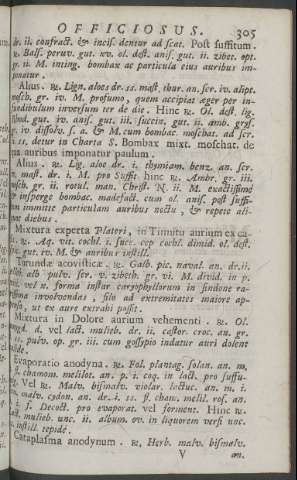 OFFICIOSUS. 305
dr. ii. confract. & incis. dentur ad scat. Post suffitum.
℞. Bals. peruv. gut. xv. ol. dest. anis. gut. ii. zibet. opt.
gr. ii. M. inting. bombax ac particula ejus auribus im-
ponatur.
Alius. ℞. Lign. aloes dr. ss. mast. thur. an. scr. iv. alipt.
mosch. gr. iv. M. pro fumo, quem accipiat æger per in-
fundibulum inversum ter de die. Hinc ℞. Ol. dest. lig.
gut. iv. anis. gut. iii. succin. gut. ii. amb. gryf.
gr. iv. dissolv. s. a. & M. cum bombac. moschat. ad scr.
ss. detur in Charta S. Bombax mixt. moschat. de
quâ auribus imponatur paulum.
Alius. ℞. Lig. aloe dr. i. thymiam. benz. an. scr.
mast. dr. i. M. pro Suffit. hinc ℞. Ambr. gr. iii.
mosch. gr. ii. rotul. man. Christ. N. ii. M. exactissimè
& insperge bombac. madefact. cum ol. anis. post suffi-
tum immitte particulam auribus noctu, & repete ali-
quot diebus.
Mixtura experta Plateri, in Tinnitu aurium ex ca-
℞. Aq. vit. cochl. i. succ. cep cochl. dimid. ol. dest.
gut. iv. M. & auribus instill.
Turundæ acousticæ. ℞. Galb. pic. naval. an. dr. ii.
alb. pulv. scr. v. zibeth. gr. vi. M. divid. in p.
vel n. forma instar caryophyllorum in sindone ra-
involvendas, filo ad extremitates maiore ap-
penso, ut ex aure extrahi possit.
Mixtura in Dolore aurium vehementi. ℞. Ol.
amygd. d. vel lact. mulieb. dr. ii. castor. croc. an. gr.
pulv. op. gr. iii. cum gossypio indatur auri dolent
Evaporatio anodyna. ℞. Fol. plantag. solan. an. m.
chamom. melilot. an. p. i. coq. in lact. pro suffu-
Vel ℞. Malv. bismalv. violar. lectuc. an. m. i.
malv. cydon. an. dr. i. ss. fl. cham. melil. ros. an.
Decoct. pro evaporat. vel foment. Hinc ℞.
mulieb. unc. ii. album. ov. in liquorem vers. unc.
instill. tepidè.
Cataplasma anodynum. ℞. Herb. malv. bismalv.
V an.